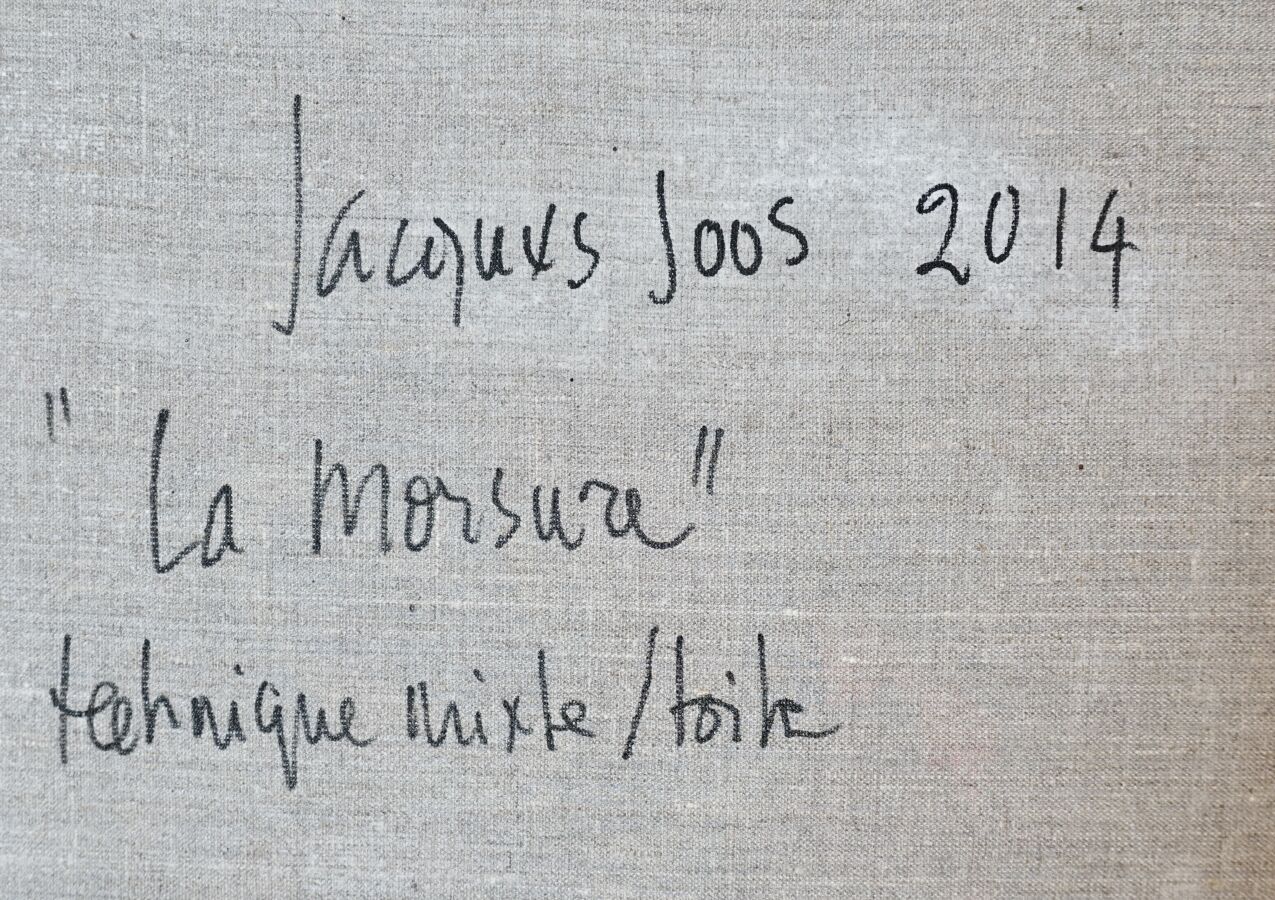 Jacques Joos 2014
"La Morsure"
technique mixte/toile